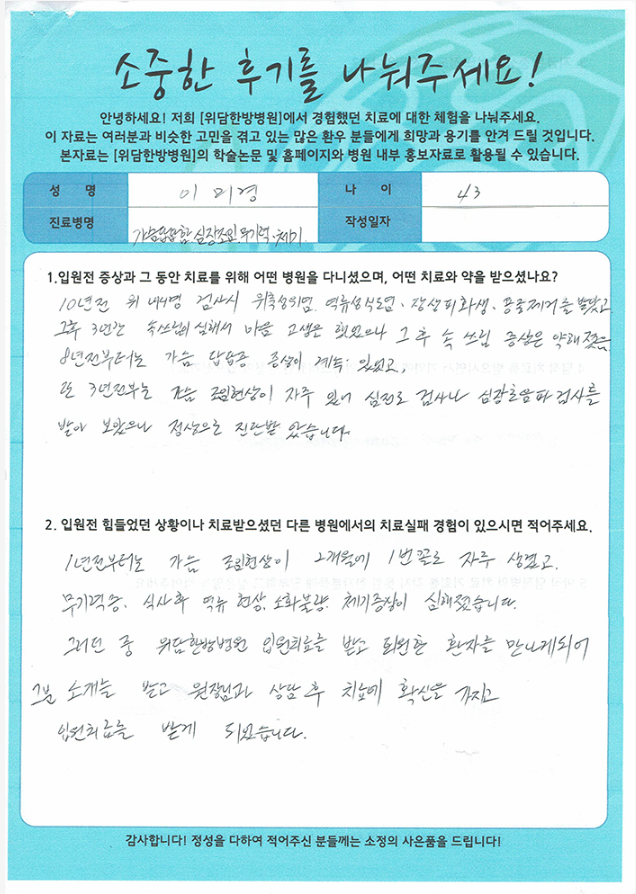 소중한 후기를 나눠주세요!
안녕하세요! 저희 [위담한방병원]에서 경험했던 치료에 대한 체험을 나눠주세요.
이 자료는 여러분과 비슷한 고민을 겪고 있는 많은 환우 분들에게 희망과 용기를 안겨 드릴 것입니다.
본자료는 [위담한방병원]의 학술논문 및 홈페이지와 병원 내부 홍보자료로 활용될 수 있습니다.
성 명 이미경 나 이 43
진료병명 가슴답답함, 심장조임, 무기력, 체기. 작성일자
1.입원전 증상과 그 동안 치료를 위해 어떤 병원을 다니셨으며, 어떤 치료와 약을 받으셨나요?
10년전 위 내시경 검사시 위축성위염, 역류성식도염, 장상피화생, 용종제거를 받았고
그후 3년간 속쓰림이 심해서 마음 고생은 했었으나 그 후 속 쓰림 증상은 약해졌음
8년전부터는 가슴 답답증 증상이 계속 있었고,
또 3년전부터는 가슴 조임현상이 자주 있어 심전도 검사나 심장초음파 검사를
받아 보았으나 정상으로 진단받았습니다.
2. 입원전 힘들었던 상황이나 치료받으셨던 다른 병원에서의 치료실패 경험이 있으시면 적어주세요.
1년전부터는 가슴 조임현상이 2개월에 1번꼴로 자주 생겼고.
무기력증, 식사후 역류 현상, 소화불량, 체기증상이 심해졌습니다.
그러던 중 위담한방병원 입원치료를 받고 퇴원한 환자를 만나게되어
그분 소개를 받고 원장님과 상담 후 치료에 확신을 가지고
입원치료를 받게 되었습니다.
감사합니다! 정성을 다하여 적어주신 분들께는 소정의 사은품을 드립니다!